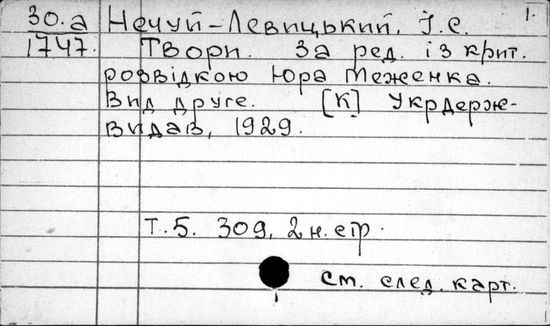 30.а Нечуй-Левицький, І.С. 1.
1747. Твори. За ред. із крит.
розвідкою Юра Меженка.
Вид друге. [К] Укрдерж-
видав, 1929.
Т.5. 309, 2 н. стр.
См. след. карт.